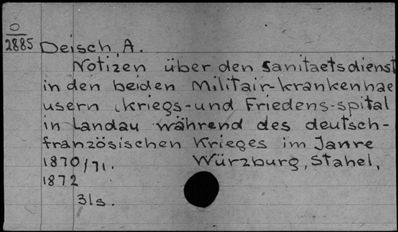 O
2885 Deisch, A.
Notizen über den Sanitaetsdienst
in den beiden Militair-krankenhae
usern kriegs-und Friedens-spital
in Landau während des deutsch-
französischen Krieges im Janre
1870/71. Würzburg, Stahel,
1872
31s.